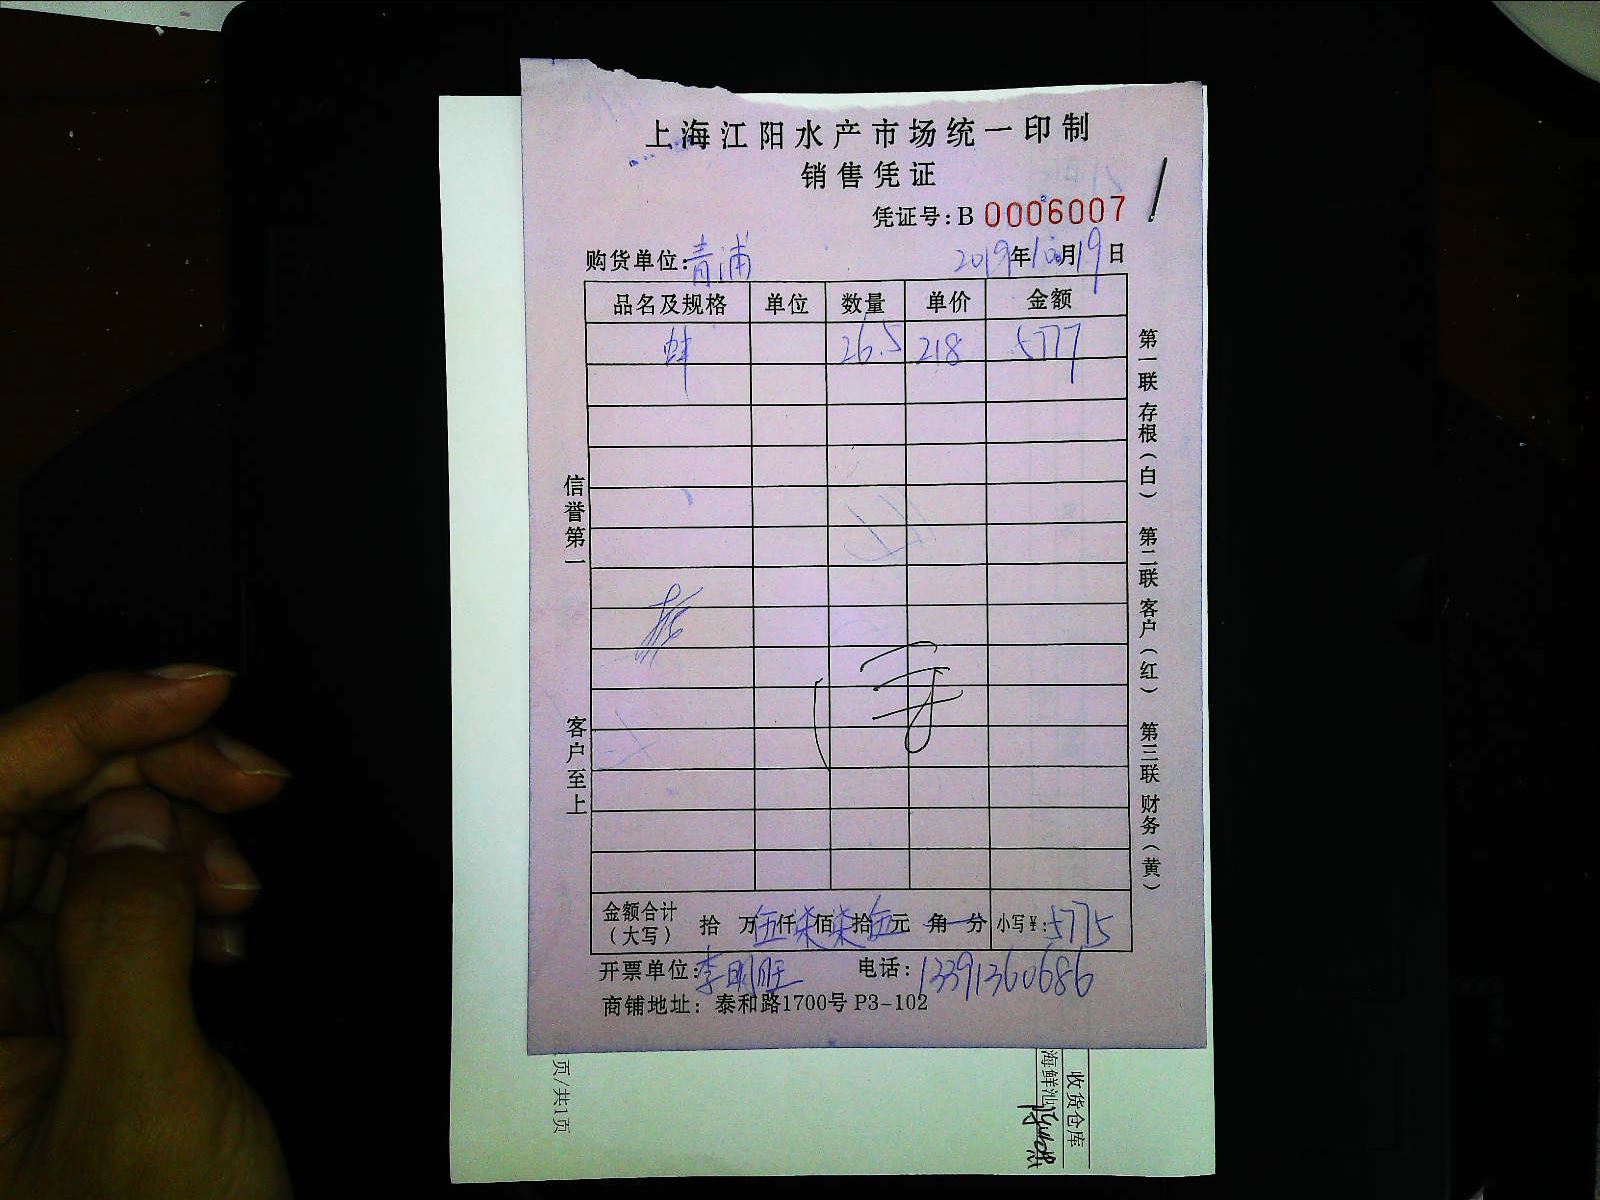 上海江阳水产市场统一印制
销售凭证
凭证号:B 0006007
购货单位:青浦 2019年10月19日
品名及规格 单位 数量 单价 金额
蚌 26.5 218 5777
信誉第一
客户至上
第一联 存根(白) 第二联 客户(红) 第三联 财务(黄)
金额合计(大写) 拾 万伍仟柒佰柒拾伍元 角 分 小写¥:5775
开票单位:李明旺 电话:13391360686
商铺地址: 泰和路1700号 P3-102
页/共1页
收货仓库
海鲜池